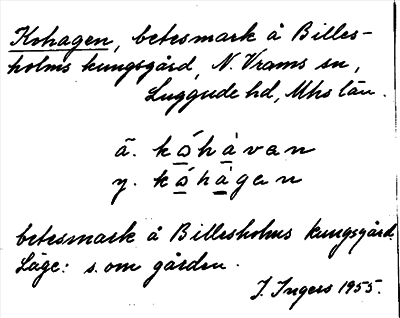 Kohagen, betesmark å Billes-
holms kungsgård, N. Vrams sn,
Luggude hd, Mhs län.
ä. kóhàvan
y. kóhàgan
betesmark å Billesholms kungsgård.
Läge: s. om gården.
J. Ingers 1955.